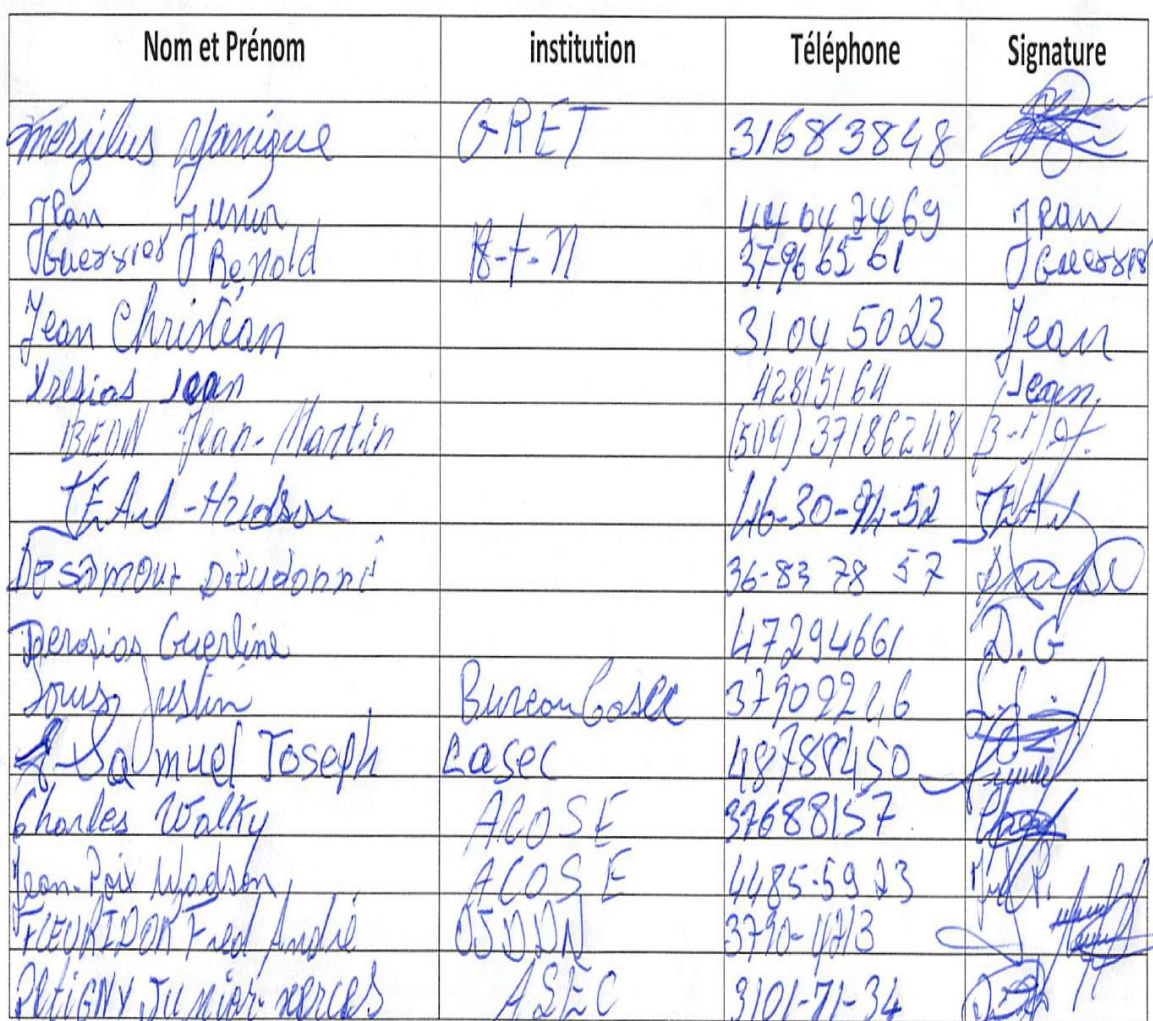 Nom et Prénom institution Téléphone Signature
Merzilus Yanique GRET 31683848
Jean Junior 44047469 Jean
Guerrier Renold 37966561 Guerrier
Jean Christian 31045023 Jean
Jean 42815164 Jean
BEON Jean-Martin (509) 37186248
JEAN-Hudson 46-30-94-52 JEAN
Desamour Dieudonné 36-83 78 57
Derosias Guerline 47294661 D.G
Louis Justin Bureau Casec
Samuel Joseph Casec 48788450
Charles Walky ACOSE 37688157
Jean-Poix Wadson ACOSE 4485-5923
FLEURIDOR Fred André OJDDN 3790-4713
PETIGNY Junior-xerces ASEC 3101-71-34